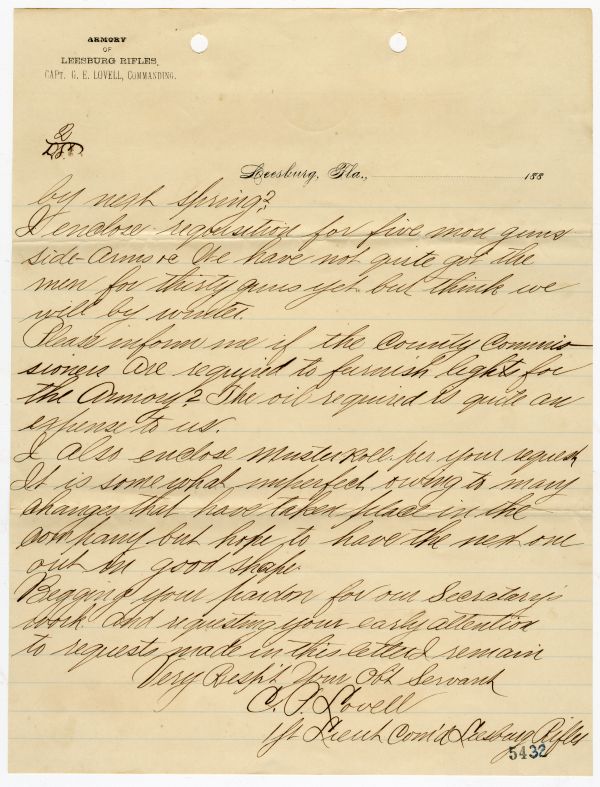 ARMORY
OF
LEESBURG RIFLES,
CAPT. G. E. LOVELL, COMMANDING.
2
Leesburg, Fla., 188
by next spring?
I enclose requisition for five more guns
side-Arms &c We have not quite got the
men for thirty guns yet but think we
will by winter.
Please inform me if the County Commis-
sioners are required to furnish lights for
the Armory? The oil required is quite an
expense to us.
I also enclose Muster Roll per your request
It is somewhat imperfect owing to many
changes that have taken place in the
company but hope to have the next one
out in good shape.
Begging your pardon for our Secratary's
work and requesting your early attention
to requests made in this letter I remain
Very Resp't Your Obt Servant
Lovell
1st Lieut Com'd Leesburg Rifles
5432